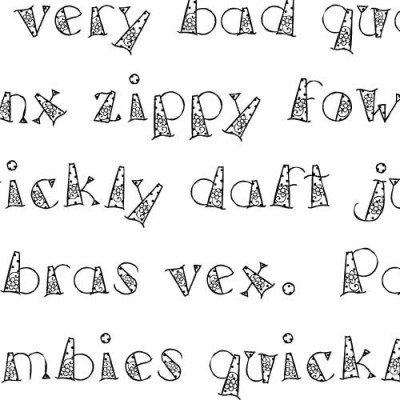 very bad quo
nx zippy fow
ickly daft ju
bras vex. Po
mbies quickl